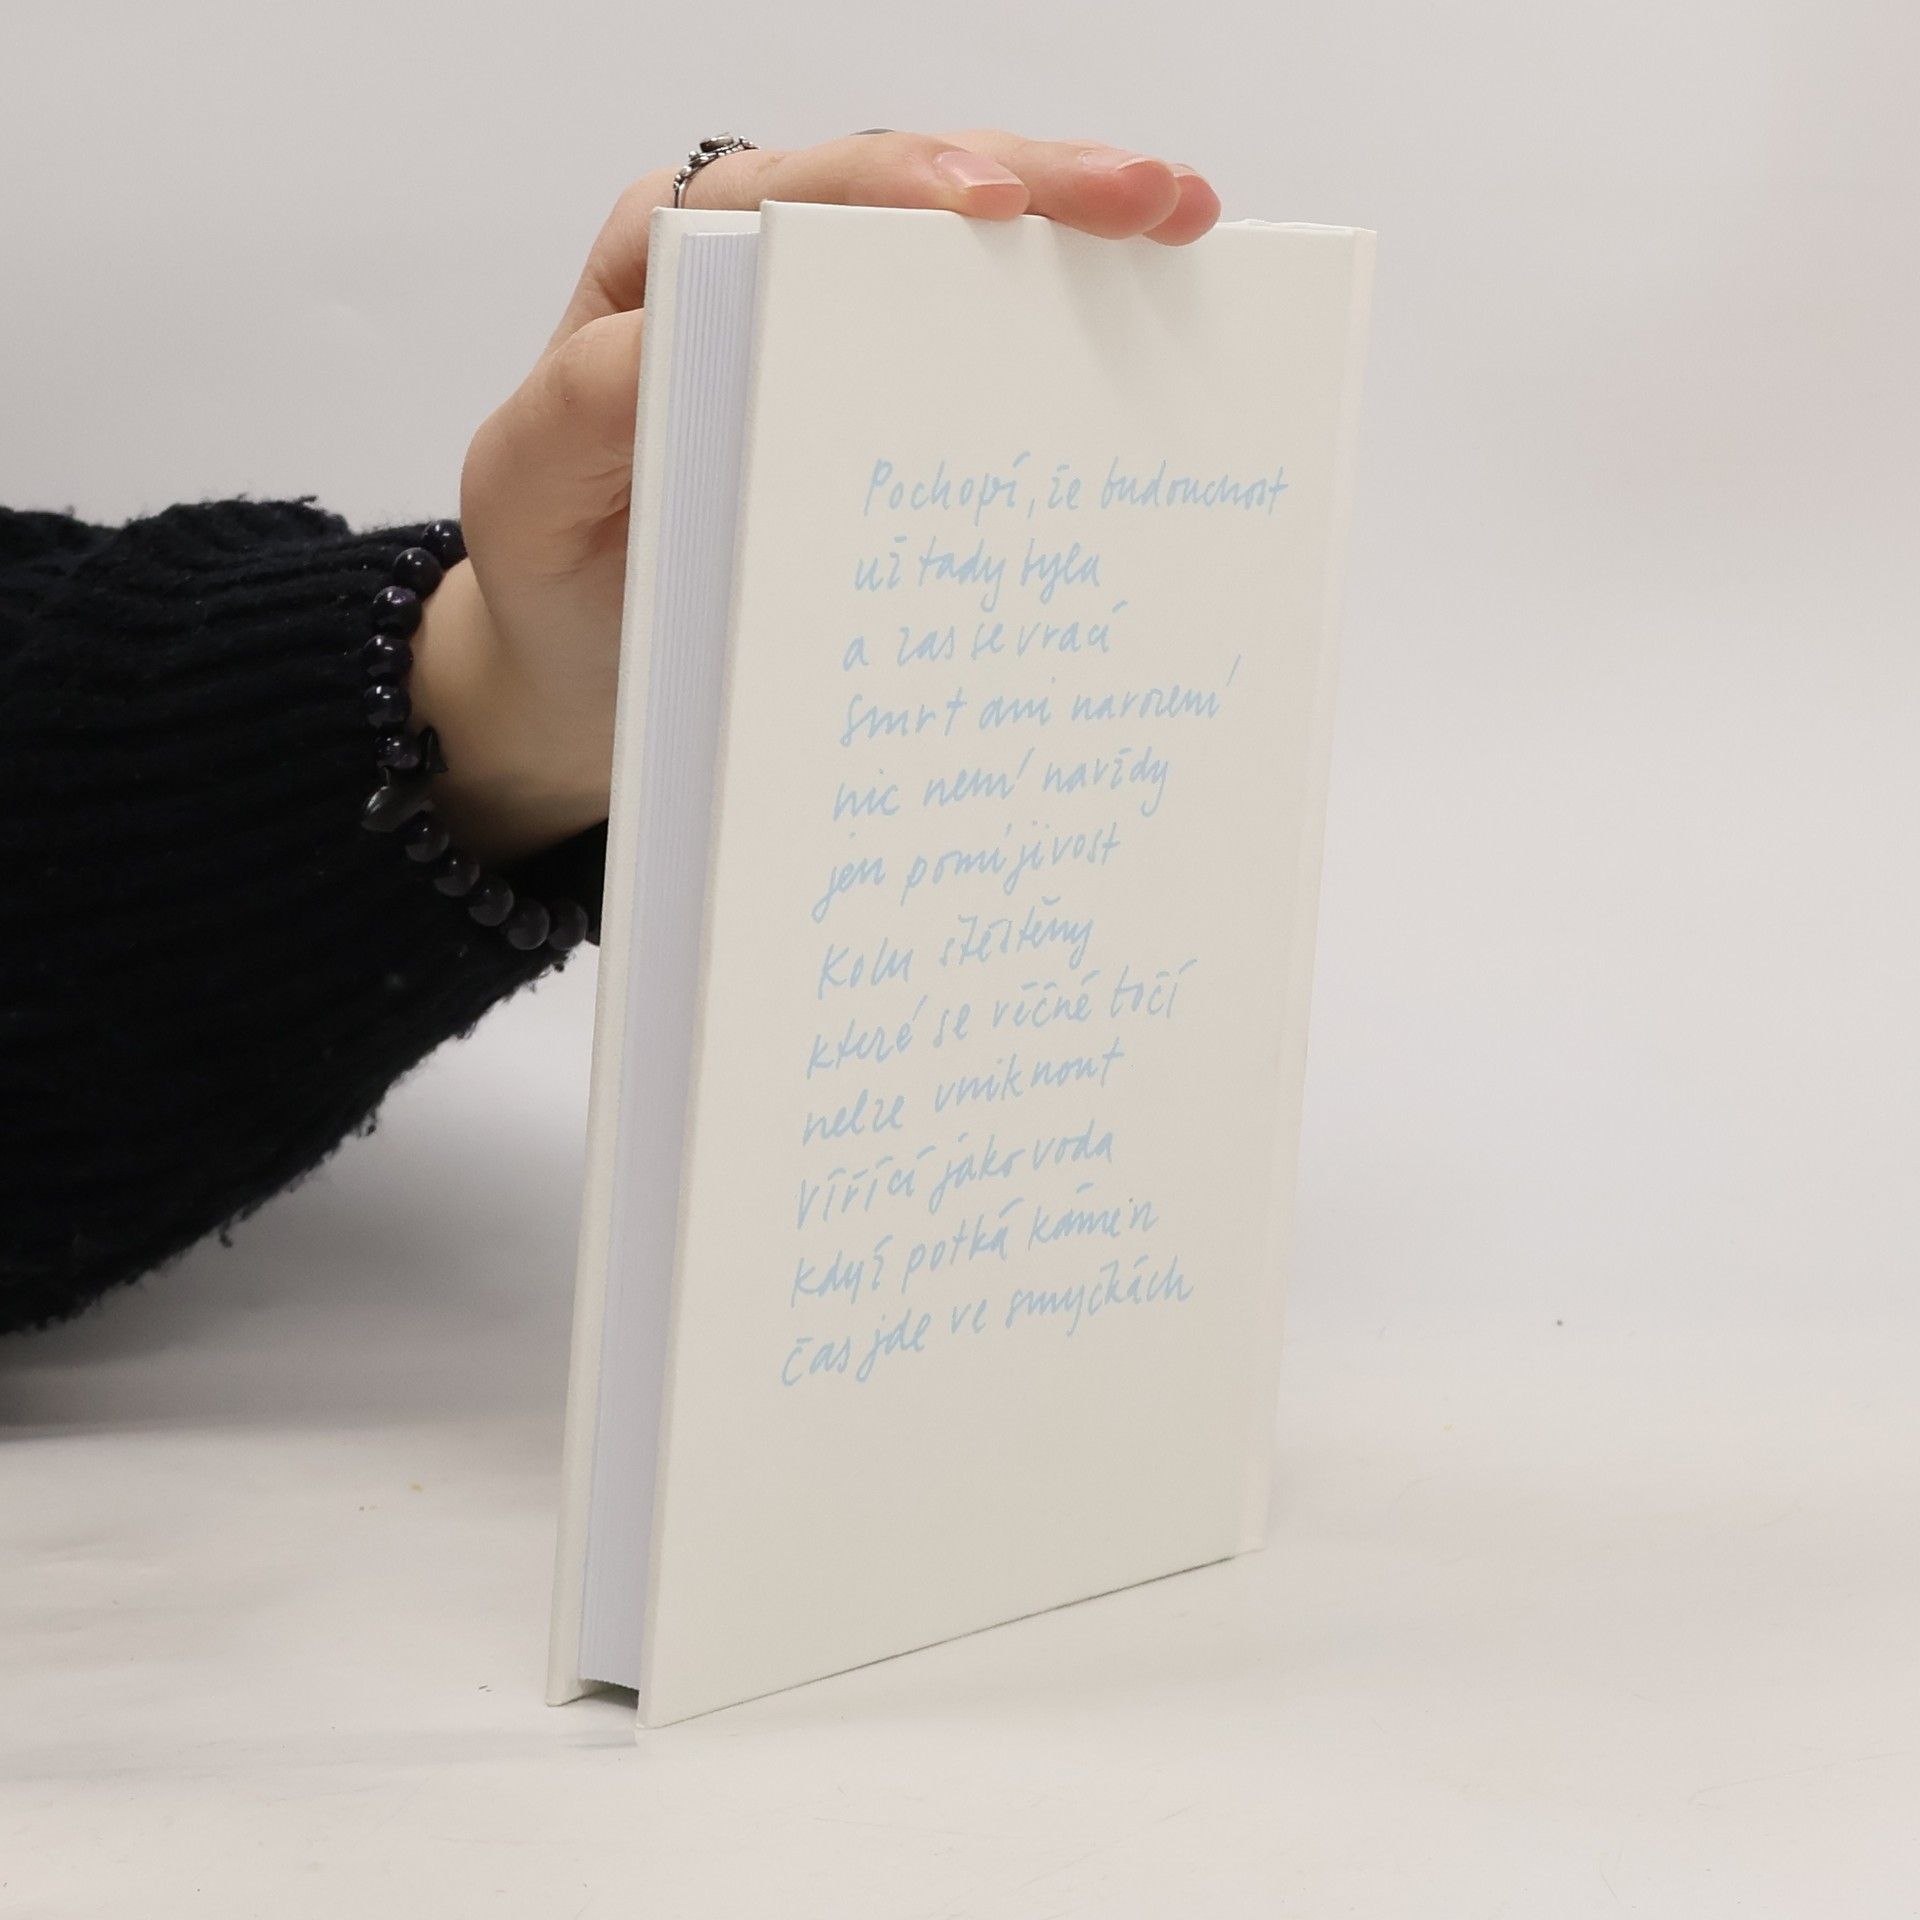 Pochopí, že budoucnost
už tady byla
a zas se vrací
smrt ani narození
nic není navždy
jen pomíjivost
Kolu štěstěny
které se věčně točí
nelze uniknout
Vířící jako voda
když potká kámen
čas jde ve smyčkách